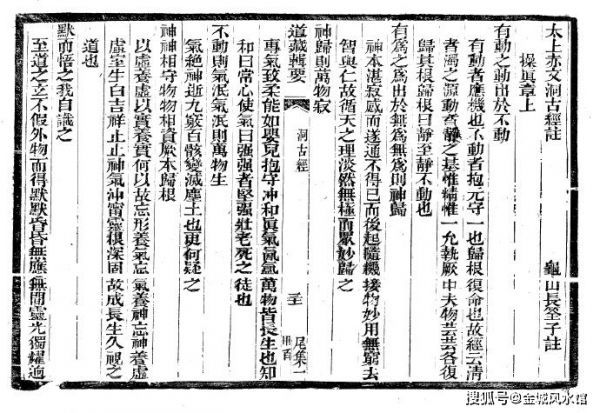 太上赤文洞古經註
龜山長筌子註
操眞章上
有動之動出於不動
有動者應機也不動者抱元守一也歸根復命也故經云清
者濁之源動者靜之基惟精惟一允執厥中夫物芸芸各復
歸其根歸根曰靜至靜不動也
有爲之爲出於無爲無爲則神歸
神本湛寂感而遂通不得已而後起隨機接物妙用無窮去
智與仁故循天之理淡然無極而眾妙歸之
神歸則萬物寂
道藏輯要
洞古經
尾集一
專氣致柔能如嬰兒抱守冲和眞氣氤氳萬物皆長生也知
和曰常心使氣曰强强者堅强壯老死之徒也
不動則氣泯氣泯則萬物生
氣絕神逝九竅百骸變滅塵土也更何疑之
神神相守物物相資厥本歸根
以虛養虛以實養實何以故忘形養氣忘氣養神忘神養虛
虛室生白吉祥止止神氣冲寗靈根深固故成長生久視之
道也
默而悟之我自識之
至道之立不假外物而得默默昏昏無應無聞靈光獨耀迥
搜狐号@金城风水馆